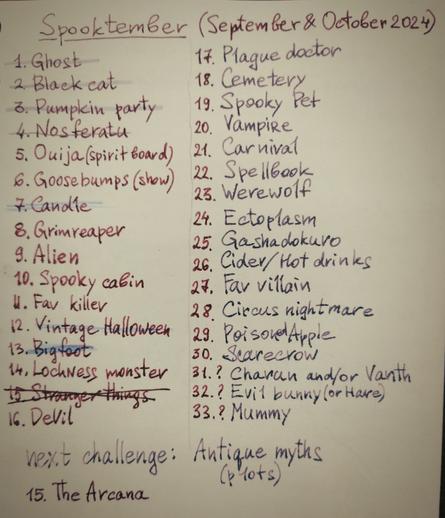 Spooktember (September & October 2024)
1. Ghost
2. Black cat
3. Pumpkin party
4. Nosferatu
5. Ouija (spirit board)
6. Goosebumps (show)
7. Candle
8. Grimreaper
9. Alien
10. Spooky cabin
11. Fav killer
12. Vintage Halloween
13. Bigfoot
14. Lochness monster
15 Stranger things
16. Devil
17. Plague doctor
18. Cemetery
19. Spooky Pet
20. Vampire
21. Carnival
22. Spellbook
23. Werewolf
24. Ectoplasm
25. Gashadokuro
26. Cider/Hot drinks
27. Fav villain
28. Circus nightmare
29. Poisoned Apple
30. Scarecrow
31.? Charun and/or Vanth
32.? Evil bunny (or Hare)
33.? Mummy
next challenge: Antique myths
(plots)
15. The Arcana